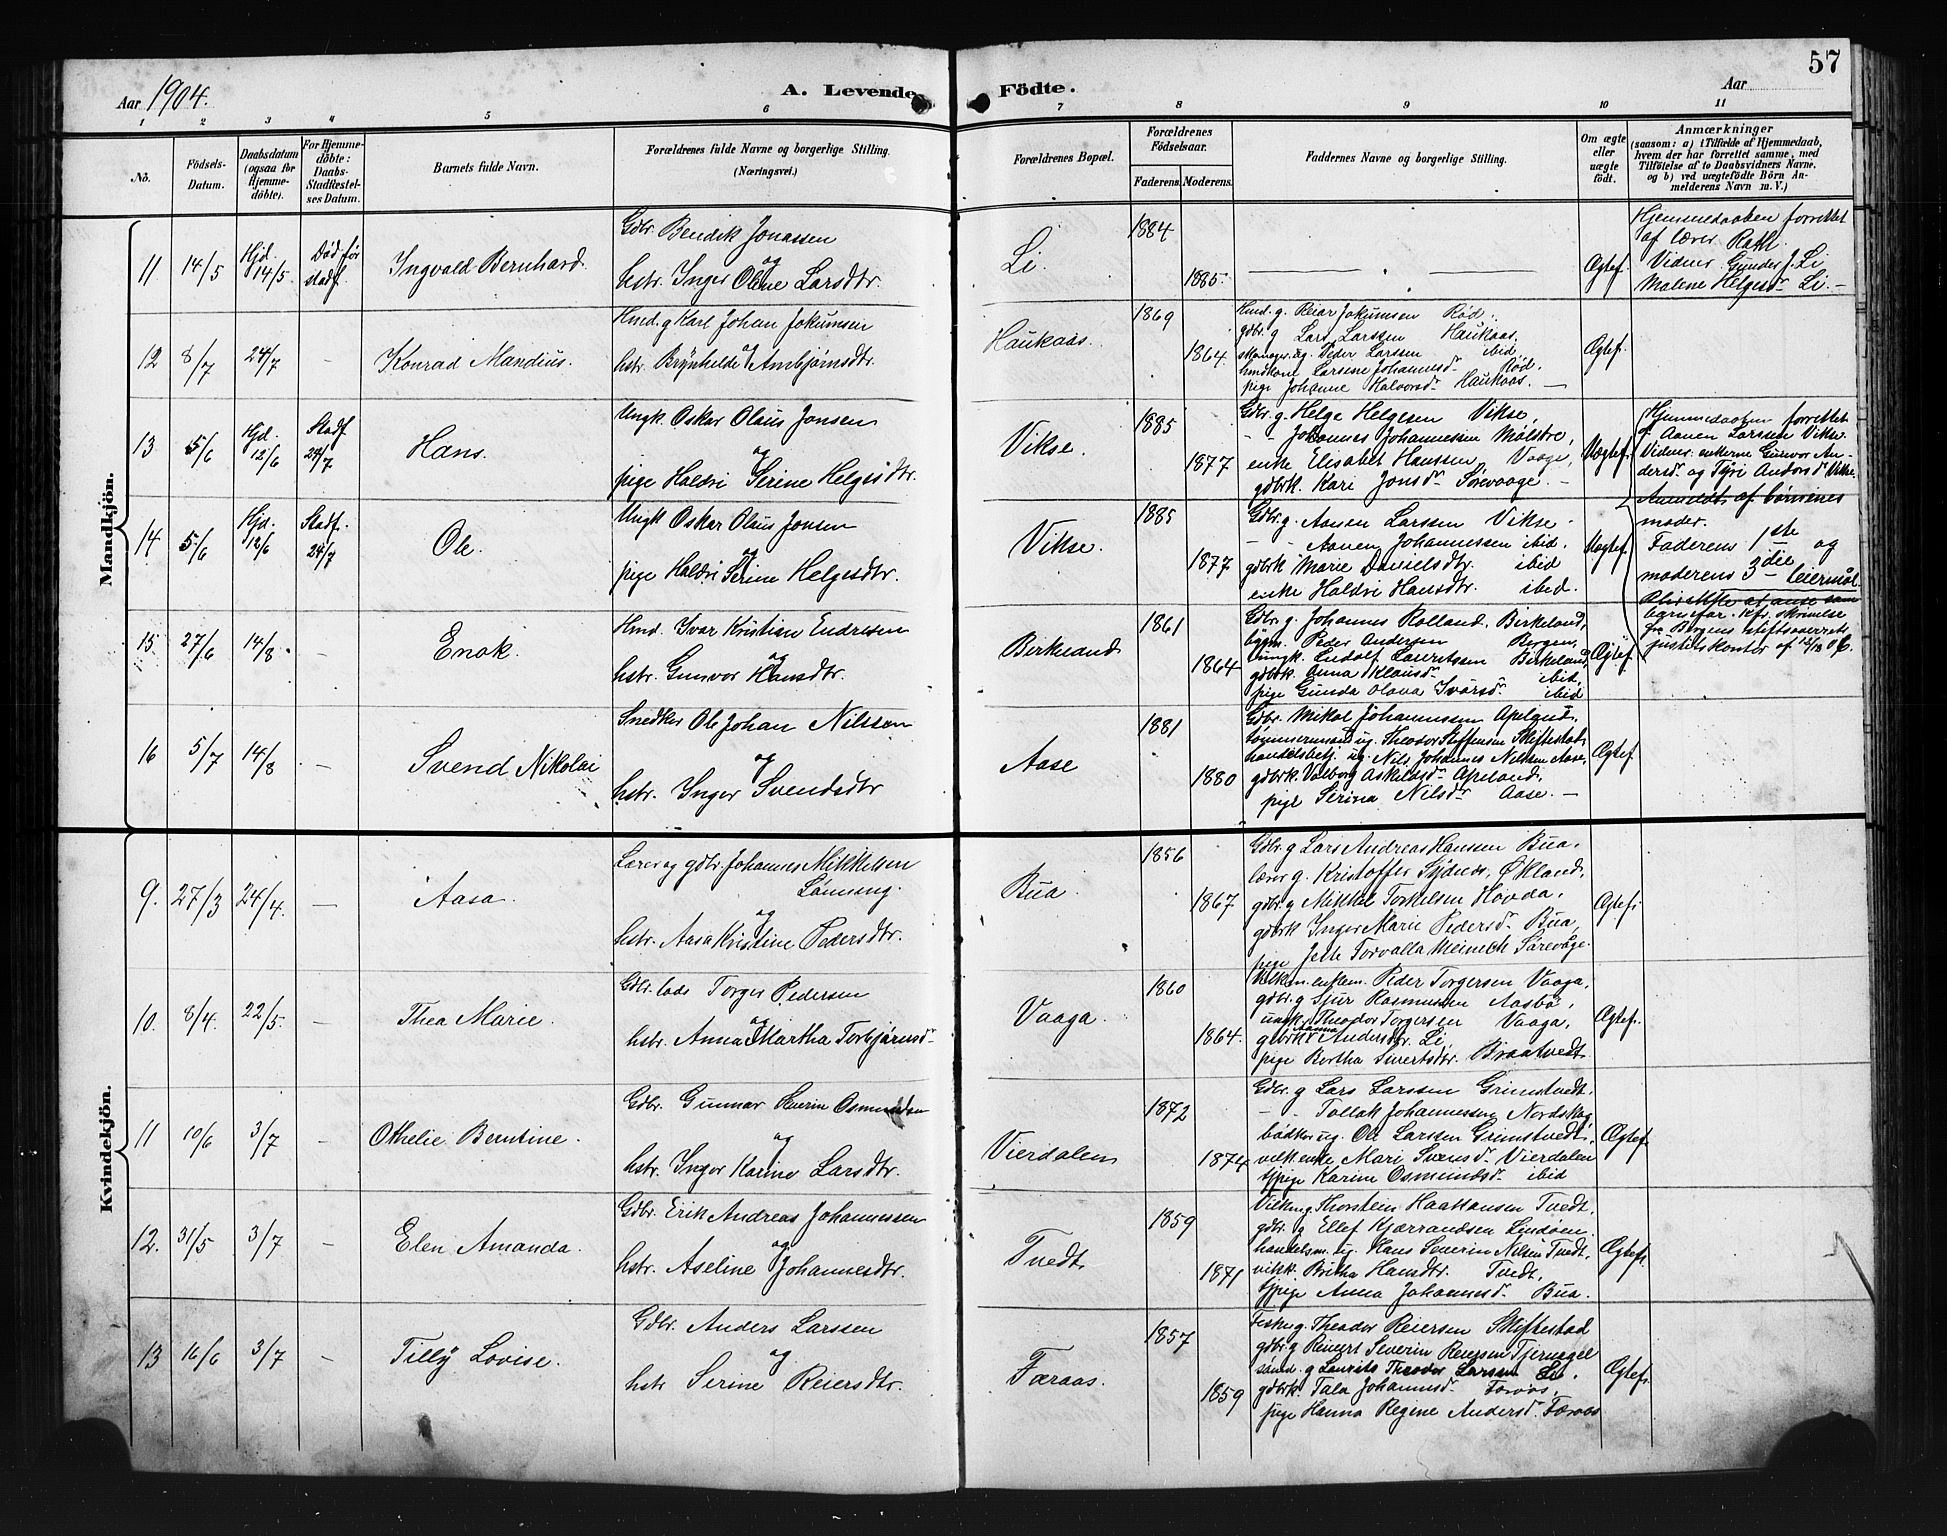 57
Aar 1904. A. Levende Födte. Aar
1 2 3 4 5 6 7 8 9 10 11
No.
Födsels-
Datum.
Daabsdatum
(ogsaa for
Hjemme-
döbte).
For Hjemme-
döbte:
Daabs-
Stadfestel-
ses Datum.
Barnets fulde Navn.
Forældrenes fulde Navne og borgerlige Stilling.
(Næringsvei.)
Forældrenes Bopæl.
Forældrenes
Födselsaar.
Faderens. Moderens.
Faddernes Navne og borgerlige Stilling.
Om ægte
eller
uægte
födt.
Anmærkninger
(saasom: a) i Tilfælde af Hjemmedaab,
hvem der har forrettet samme, med
Tilföielse af to Daabsvidners Navne,
og b) ved uægtefödte Börn An-
melderens Navn m. V.)
Mandkjön.
11 14/5 Hjd. 14/5 Död før stadf. Ingvald Bernhard.
Gdbr. Bendik Jonassen
og
hstr. Inger Oline Larsdtr.
Li. 1884 1885. Ægtef.
Hjemmedaaben forrettet
af lærer Rath.
Vidner Gunder J. Li
Malene Helgesdr Li. —
12 8/7 24/7 — Konrad Mandius.
Hmd. g Karl Johan Jokumsen
og
hstr. Brynhelde Ambjørnsdtr.
Haukaas. 1869 1864.
Hmd. g. Reiar Jokumsen Rød.
gdbr. g Lars Larssen Haukaas.
ug. Peder Larssen ibid.
hmdkone Larsine Johannesdr Rød.
pige Johanne Halvorsdr Haukaas. —
Ægtef.
13 5/6 Hjd. 12/6 Stadf. 24/7 Hans.
Ungk. Oskar Olaus Jonsen
og
pige Haldri Serine Helgesdtr.
Vikse. 1885 1877
Gdbr. g. Helge Helgesen Vikse,
- - Johannes Johannessen Mølstre,
enke Elisabet Hanssen Vaage,
gdbrk. Kari Jonsdr Sørevaage. —
Uægtef.
Hjemmedaaben forrettet
af Aanen Larssen Vikse.
Vidner: enkerne Gunvor An-
dersdr og Tyri Andorsdr Vikse.
Anmeldt af børnenes
moder.
14. 5/6 Hjd. 12/6 Stadf. 24/7 Ole.
Ungk Oskar Olaus Jonsen
og
pige Haldri Serine Helgesdtr.
Vikse. 1885 1877
Gdbr. g. Aanen Larssen Vikse.
- - Aanen Johannessen ibid.
gdbrk Marie Danielsdtr. ibid
enke Haldri Hansdtr. ibid.
Uægtef.
Faderens 1ste og
moderens 3die leiermål.
15 27/6 14/8. — Enok.
Hmd. Ivar Kristian Endresen
og
hstr. Gunvor Hansdtr.
Birkeland 1861 1864
Gdbr. g. Johannes Rolland, Birkeland,
Peder Andersen Bergen,
ungk. Ludolf Lauritssen Birkeland,
gdbrk. Anna Klausdr ibid,
pige Gunda Olava Ivarsdr ibid
Ægtef.
16 5/7 14/8 — Svend Nikolai
Snedker Ole Johan Nilssen
og
hstr. Inger Svendsdtr
Aase 1881 1880
Gdbr. Mikal Johannessen Apeland,
tømmermand ug. Theodor Steffensen Skiftestad,
handelsbetj. ug. Nils Johannes Nilssen Aase,
gdbrk. Valborg Askildsdr Apeland,
pige Serina Nilsdr Aase. —
Ægtef.
Kvindekjön.
9. 27/3 24/4. — Aasa.
Lærer og gdbr. Johannes Mikkelsen
Lønning.
og
hstr. Aasa Kristine Pedersdtr.
Bua. 1856 1867
Gdbr. g Lars Andreas Hansen Bua.
lærer g. Kristoffer Sydnes, Økland,
gdbr. g Mikkel Torkelsen Hovda,
gdbrk Inger Marie Pedersdr Bua,
pige Jette Torvalla Meinech Sørevåge.
Ægtef.
10. 8/4. 22/5. — Thea Marie.
Gdbr. lods Torger Pedersen
og
hstr. Anna Martha Torbjørnsdr
Vaaga. 1860 1864.
enkem. Peder Torgersen Vaaga,
gdbr. g Sjur Rasmussen Aasbø,
ungk. Theodor Torgersen Vaaga,
gdbrk Hanna Andersdtr. Li,
pige Bertha Sivertsdtr. Braatvedt
Ægtef.
11 10/6 3/7 — Othelie Berntine.
Gdbr. Gunnar Severin Osmundsen
og
hstr. Inger Karine Larsdtr.
Vierdalen 1872 1874
Gdbr. g Lars Larssen Grimstvedt.
- - Tollak Johannessen Nordskog
bødker ug. Ole Larssen Grimstvedt,
velk. enke Mari Svensdr Vierdalen
tjpige Karine Osmundsdr ibid
Ægtef.
12. 31/5 3/7 — Elen Amanda.
Gdbr. Erik Andreas Johannessen
og
hstr. Aseline Johannesdtr.
Tvedt 1859 1871
Vilkm g Thorstein Haakonsen Tvedt,
gdbr. g Ellef Kjærrandsen Lindøen,
handelsm. ug. Hans Severin Nilsen Tvedt,
vikk. Britha Hansdtr. Tvedt,
tjpige Anna Johannesdr Bua.
Ægtef.
13 16/6 3/7 — Tilly Lovise.
Gdbr. Anders Larssen
og
hstr Serine Reiersdtr.
Færaas. 1857 1859
Fisker g. Theodor Reiersen Skiftestad
gdbr. g Reinert Severin Reiersen Tjernagel
sømd. g Laurits Theodor Larssen Li.
gdbrk. Tala Johannesdr Færaas,
pige Hanna Regine Andersdr. Færaas
Ægtef.